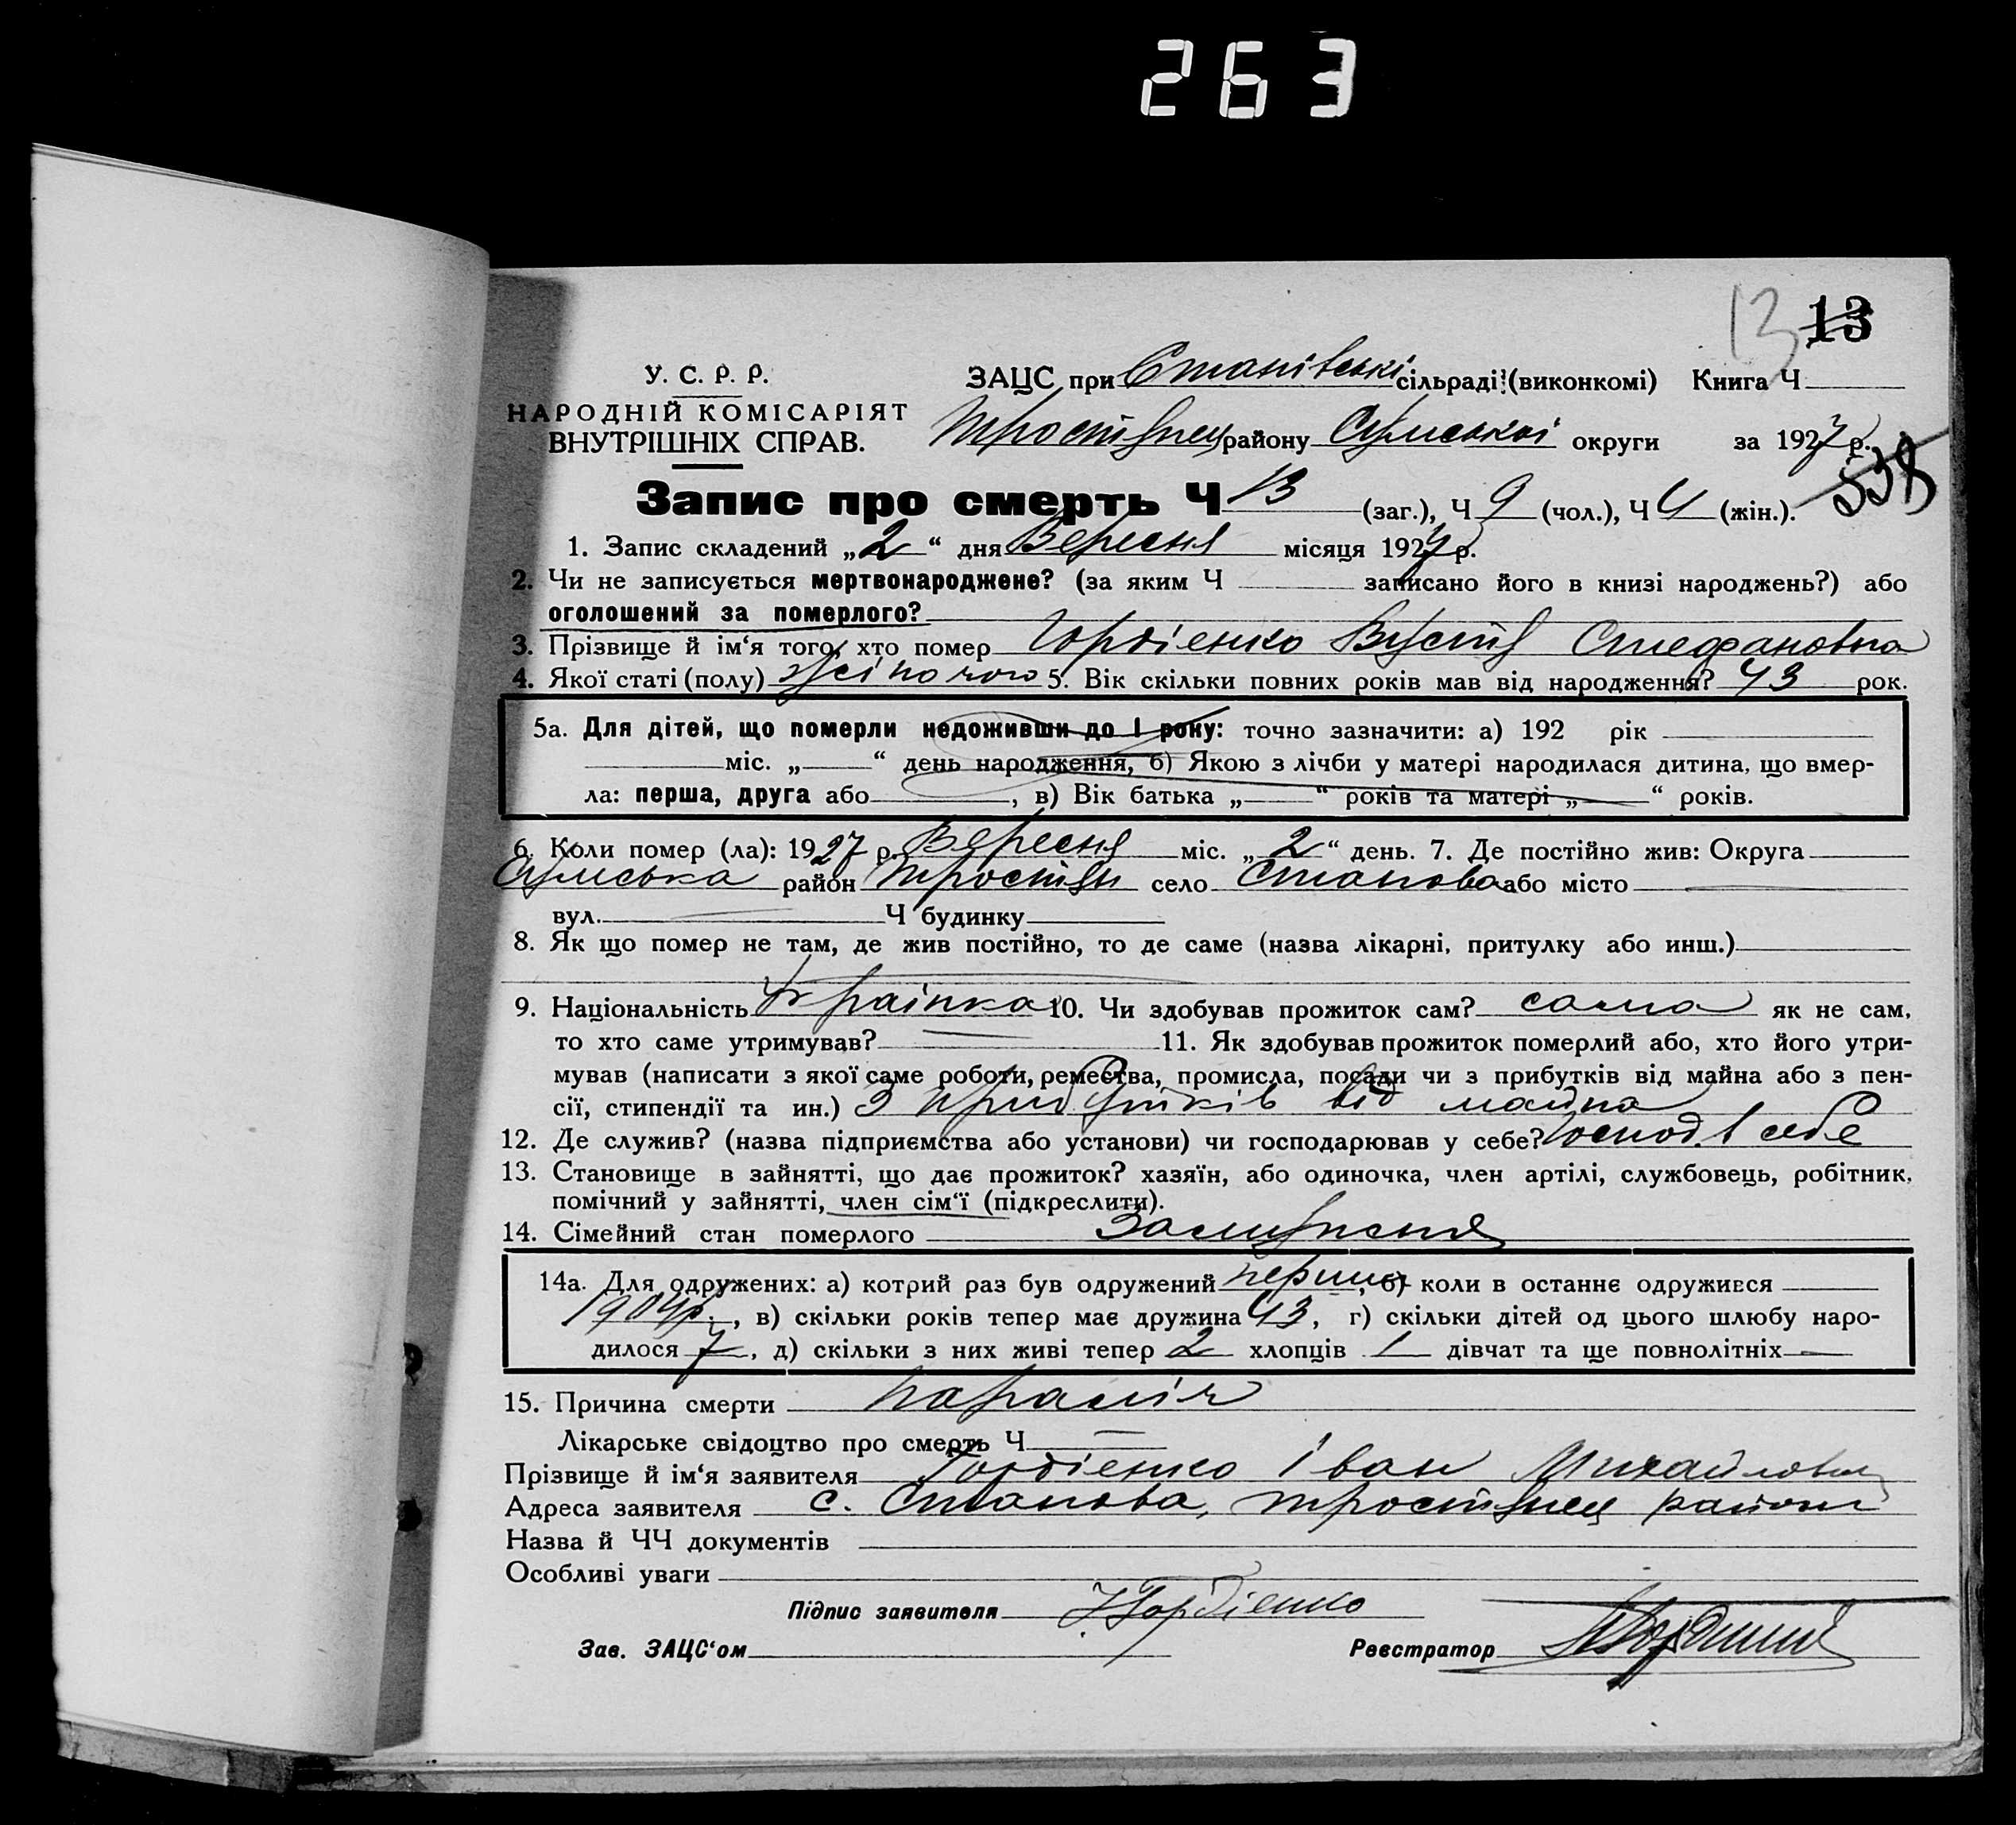 263
13 13
У. С. Р. Р.
НАРОДНІЙ КОМІСАРІЯТ
ВНУТРІШНІХ СПРАВ.
ЗАЦС при Станівські сільраді (виконкомі) Книга Ч
Тростянец району Сумської округи за 1927 р.
538
Запис про смерть Ч 13 (заг.), Ч 9 (чол.), Ч 4 (жін.).
1. Запис складений „2“ дня Вересня місяця 1927 р.
2. Чи не записується мертвонароджене? (за яким Ч записано його в книзі народжень?) або
оголошений за померлого?
3. Прізвище й ім‘я того, хто помер Гордієнко Стефановна
4. Якої статі (полу) жіночого 5. Вік скільки повних років мав від народження? 43 рок.
5а. Для дітей, що померли недоживши до І року: точно зазначити: а) 192 рік
міс. „ “ день народження, б) Якою з лічби у матері народилася дитина, що вмер-
ла: перша, друга або , в) Вік батька „ “ років та матері „ “ років.
6. Коли помер (ла): 1927 р. Вересня міс. „2“ день. 7. Де постійно жив: Округа
Сумська район Тростян село Станова або місто
вул. Ч будинку
8. Як що помер не там, де жив постійно, то де саме (назва лікарні, притулку або инш.)
9. Національність Українка 10. Чи здобував прожиток сам? сама як не сам,
то хто саме утримував? 11. Як здобував прожиток померлий або, хто його утри-
мував (написати з якої саме роботи, ремества, промисла, посади чи з прибутків від майна або з пен-
сії, стипендії та ин.) З прибутків від майна
12. Де служив? (назва підприємства або установи) чи господарював у себе? Господ. в себе
13. Становище в зайнятті, що дає прожиток? хазяїн, або одиночка, член артілі, службовець, робітник,
помічний у зайнятті, член сім‘ї (підкреслити).
14. Сімейний стан померлого Замужня
14а. Для одружених: а) котрий раз був одружений перши, б) коли в останнє одружився
1904р., в) скільки років тепер має дружина 43, г) скільки дітей од цього шлюбу наро-
дилося 7, д) скільки з них живі тепер 2 хлопців 1 дівчат та ще повнолітніх
15. Причина смерти параліч
Лікарське свідоцтво про смерть Ч
Прізвище й ім‘я заявителя Гордієнко Іван Михайлович
Адреса заявителя с. Станова, Тростянец району
Назва й ЧЧ документів
Особливі уваги
Підпис заявителя І Гордієнко
Зав. ЗАЦС‘ом Реєстратор